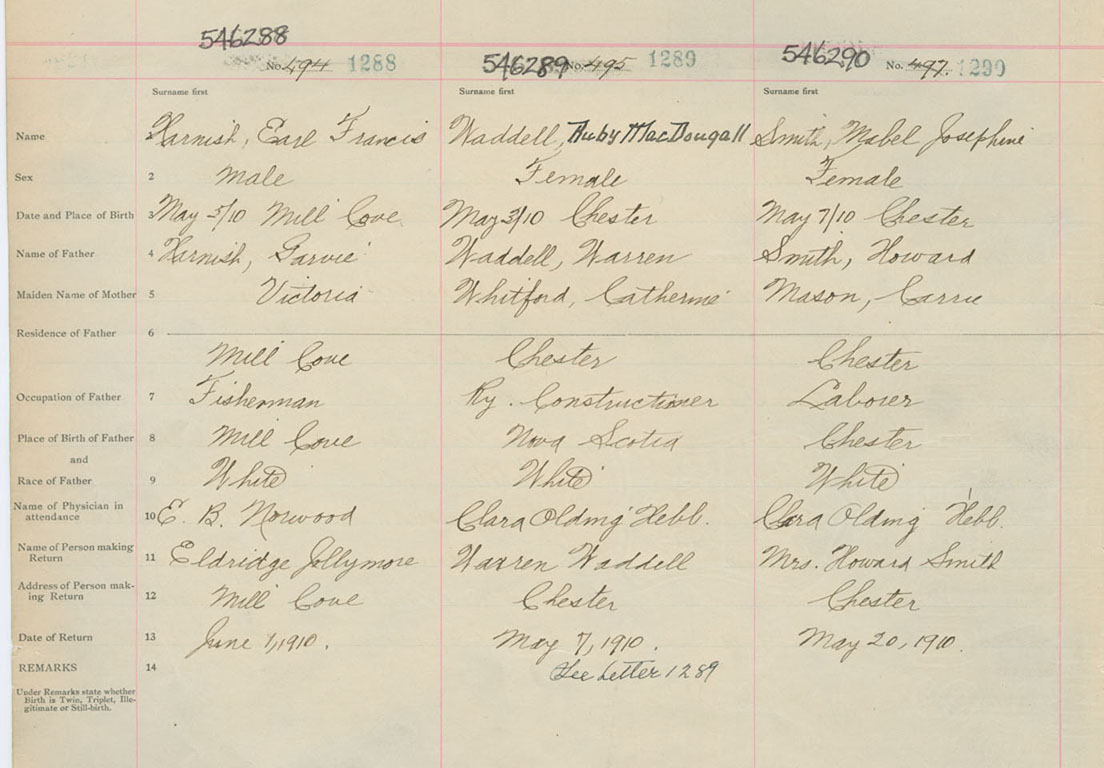 546288 546289 546290
No. 494 1288 No. 495 1289 No. 497. 1290
Surname first Surname first Surname first
Name Harnish, Earl Francis Waddell, Ruby MacDougall Smith, Mabel Josephine
Sex 2 Male Female Female
Date and Place of Birth 3 May 5/10 Mill Cove May 3/10 Chester May 7/10 Chester
Name of Father 4 Harnish, Garvie Waddell, Warren Smith, Howard
Maiden Name of Mother 5 Victoria Whitford, Catherine Mason, Carrie
Residence of Father 6
Mill Cove Chester Chester
Occupation of Father 7 Fisherman Ry. Constructioner Laborer
Place of Birth of Father 8 Mill Cove Nova Scotia Chester
and
Race of Father 9 White White White
Name of Physician in
attendance 10 E. B. Norwood Clara Olding Hebb. Clara Olding Hebb.
Name of Person making
Return 11 Eldridge Jollymore Warren Waddell Mrs. Howard Smith
Address of Person mak-
ing Return 12 Mill Cove Chester Chester
Date of Return 13 June 1, 1910. May 7, 1910. May 20, 1910.
REMARKS 14 See Letter 1289
Under Remarks state whether
Birth is Twin, Triplet, Ille-
gitimate or Still-birth.